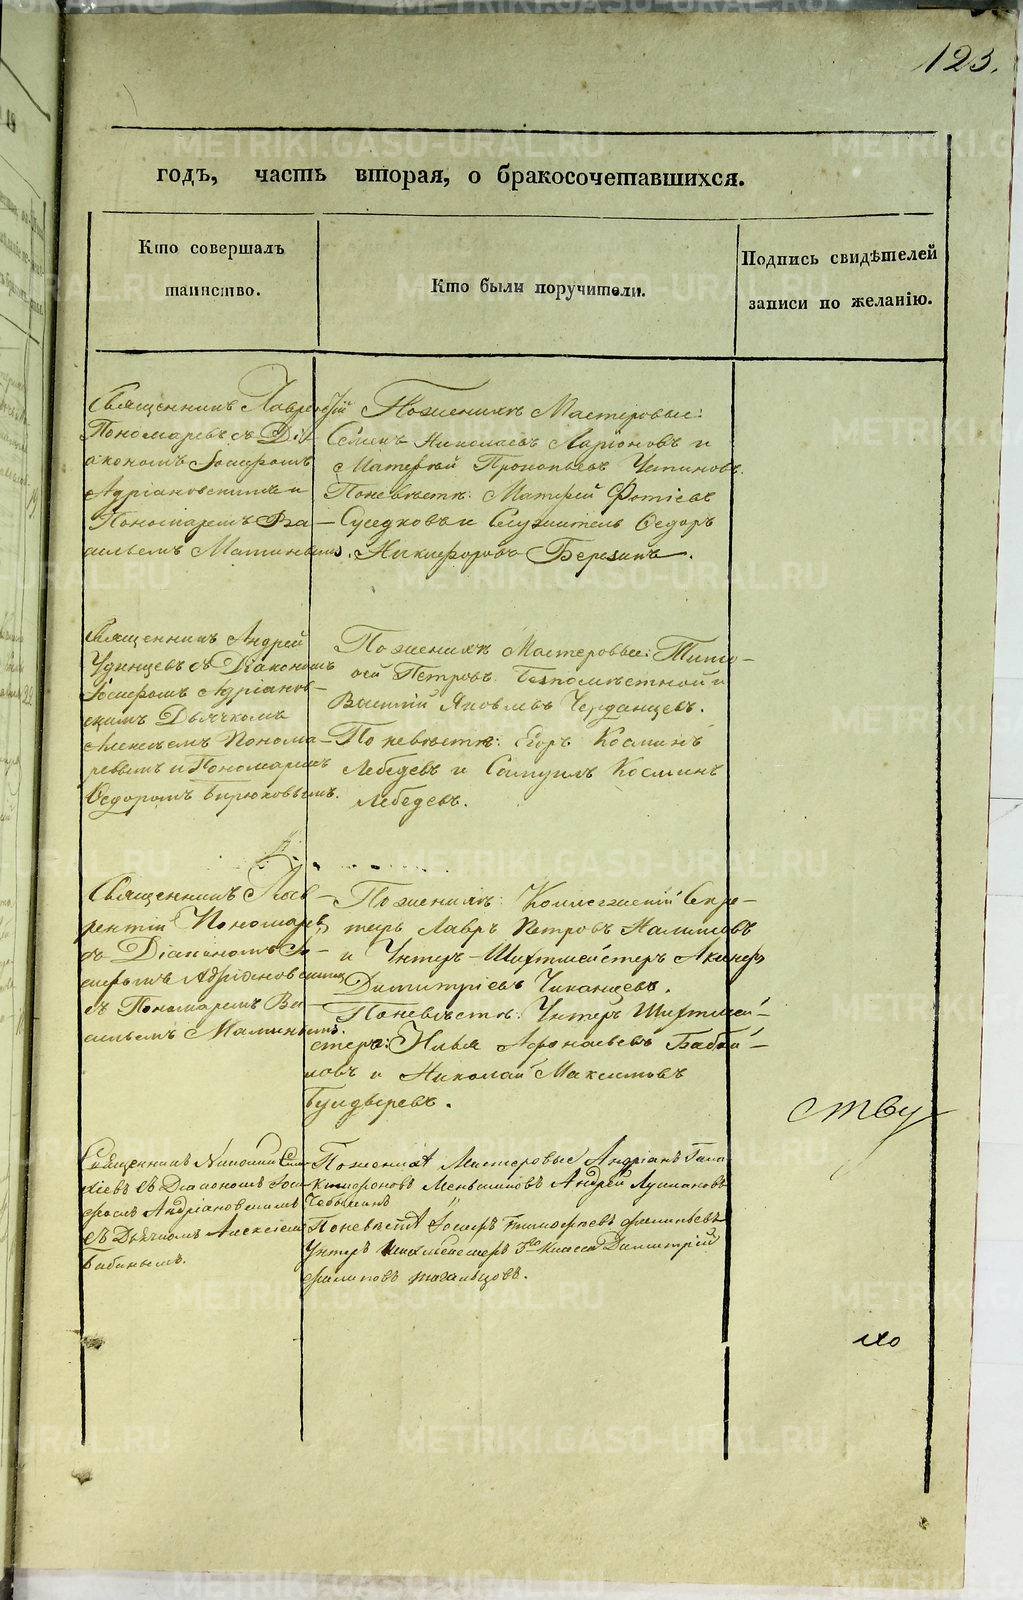 123.
годъ, часть вторая, о бракосочетавшихся.
Кто совершалъ
таинство.
Кто были поручители.
Подпись свидѣтелей
записи по желанію.
Священникъ Лаврентій
Пономаревъ съ Ді-
акономъ Іосифомъ
Адріановскимъ и
Пономаремъ Ва-
сильемъ Маминымъ.
По женихѣ Мастеровые:
Семенъ Николаевъ Ларіоновъ и
Матвѣй Прокопьевъ
По невѣстѣ: Матвѣй Фотіевъ
Суседковъ и Служитель Ѳедоръ
Никифоровъ Березинъ.
Священникъ Андрей
Удинцевъ съ Діакономъ
Іосифомъ Адріанов-
скимъ Дьячкомъ
Алексѣемъ Понома-
ревымъ и Пономаремъ
Ѳедоромъ Бирюковымъ.
По женихѣ Мастеровые: Тимо-
ѳей Петровъ Безпомѣстной и
Василій Яковлевъ Черданцевъ.
По невѣстѣ: Егоръ Косминъ
Лебедевъ и Самуилъ Косминъ
Лебедевъ.
Священникъ Лав-
рентій Пономаревъ
съ Діакономъ Іо-
сифомъ Адріановскимъ
съ Пономаремъ Ва-
сильемъ Маминымъ.
По женихѣ: Коллежскій Секре-
тарь Лавръ Петровъ Налимовъ
и Унтеръ-Шихтмейстеръ
Димитріевъ
По невѣстѣ: Унтеръ Шихтмей-
стеръ: Илья Аѳонасьевъ Бабай-
ловъ и Николай Максимовъ
Булдыревъ.
ству
Священникъ Николай
съ Діакономъ Іоси-
фомъ Андріановскимъ
съ Дьячкомъ Алексѣемъ
Бабинымъ.
По женихѣ Мастеровые Андріанъ
Меньшиковъ Андрей
По невѣстѣ Іосифъ Тимофѣевъ Филипьевъ
Унтеръ Шихмейстеръ Класса Димитрій
Филиповъ
ихо
METRIKI.GASO-URAL.RU